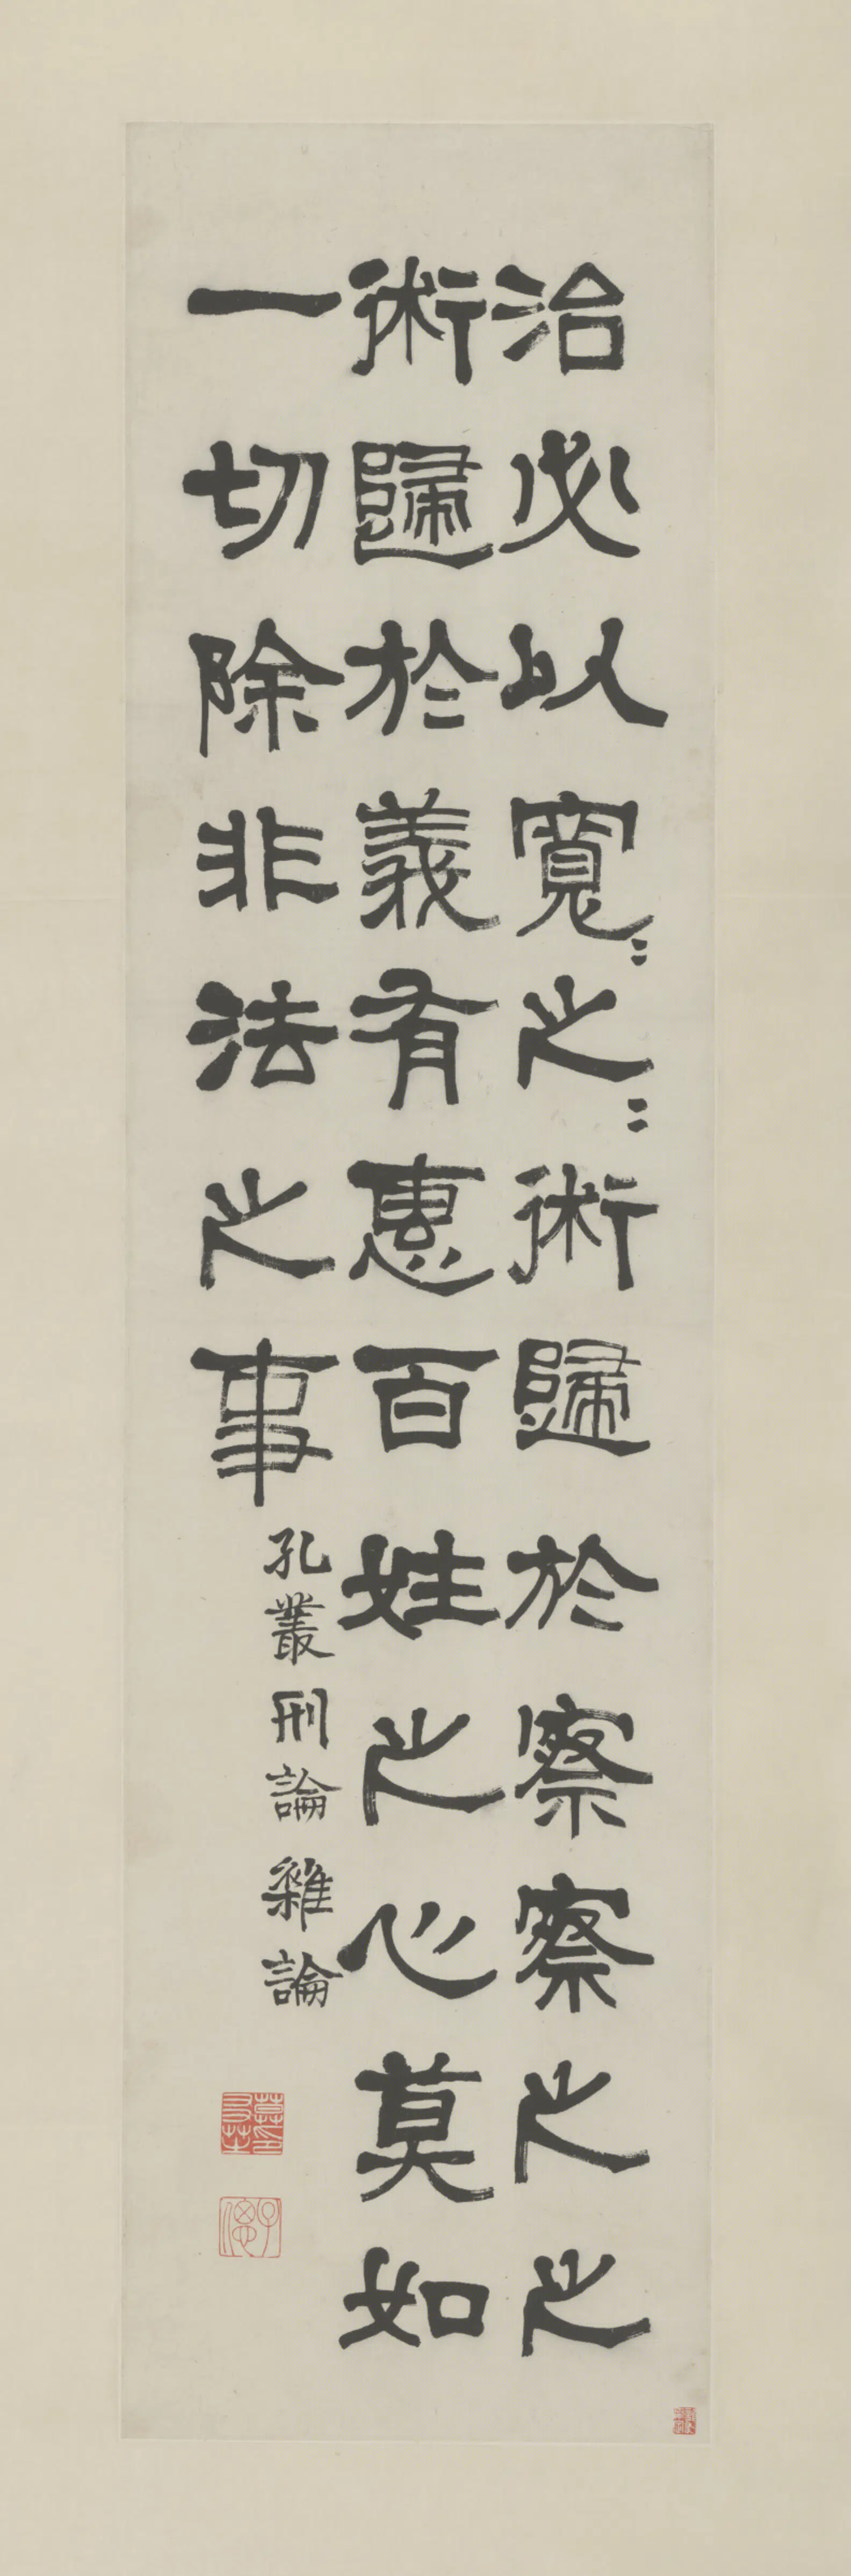 治必以寬〻之〻術歸於察察之之
術歸於義有惠百姓之心莫如
一切除非法之事
孔叢刑論雜論
莫友芝